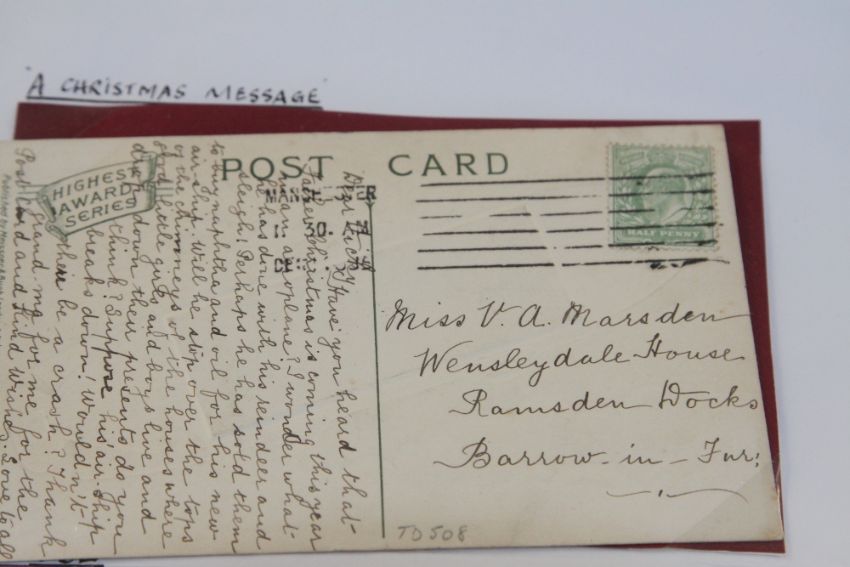 'A CHRISTMAS MESSAGE'
POST CARD
HIGHEST
AWARD
SERIES
HALF PENNY
30.
Dear Vicky, Have you heard that
Father Christmas is coming this year
in an aeroplane? I wonder what
he has done with his reindeer and
sleigh! Perhaps he has sold them
to buy naphtha and oil for his new
airship. Will he stop over the tops
of the chimneys of the houses where
good little girls and boys live and
drop down their presents do you
think? Suppose his air ship
breaks down! Wouldn't
there be a crash? Thank
grand ma for me for the
Post Card and kind wishes. Love to all
Miss V. A. Marsden
Wensleydale House
Ramsden Docks
Barrow-in-Fur:
TD508